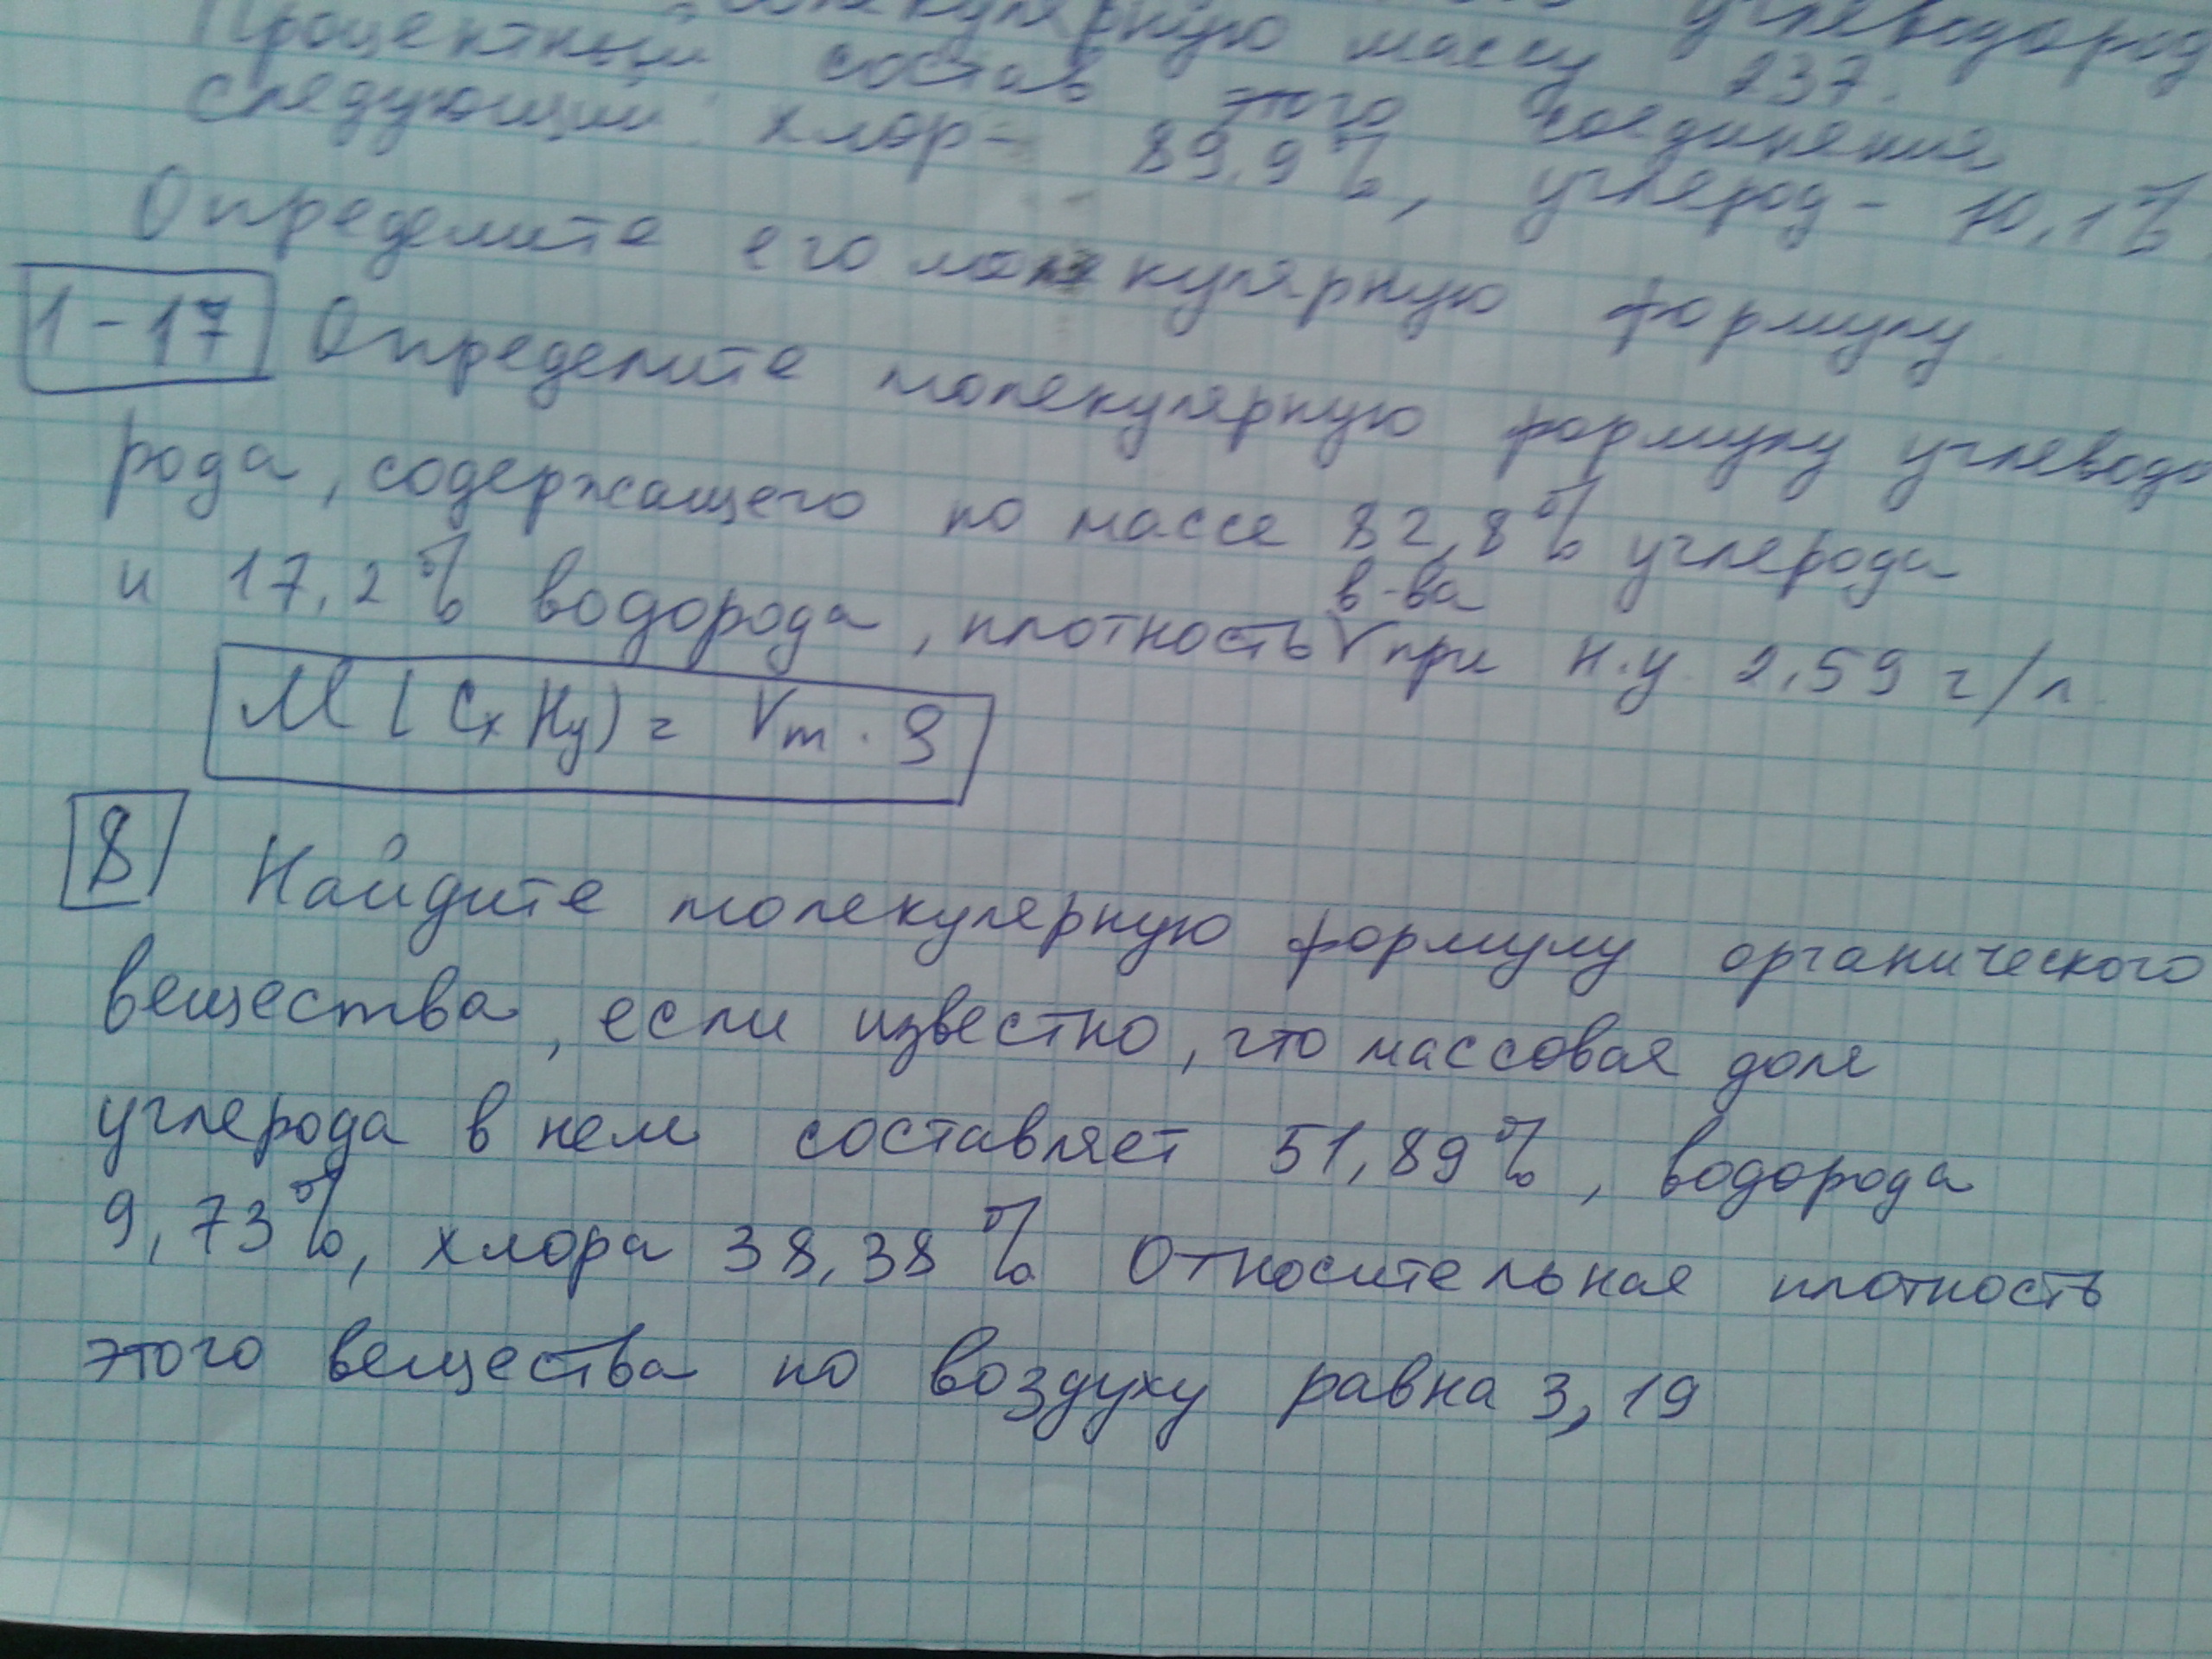 молекулярную массу 237.
Процентный состав этого соединения
следующий: хлор- 89,9%, углерод- 10,1%
Определите его молекулярную формулу.
1-17 Определите молекулярную формулу углеводо
рода, содержащего по массе 82,8% углерода
в-ва
и 17,2% водорода, плотность V при н.у. 2,59 г/л.
M (CxHy) = Vm · ρ
8 Найдите молекулярную формулу органического
вещества, если известно, что массовая доля
углерода в нем составляет 51,89%, водорода
9,73%, хлора 38,38% Относительная плотность
этого вещества по воздуху равна 3,19